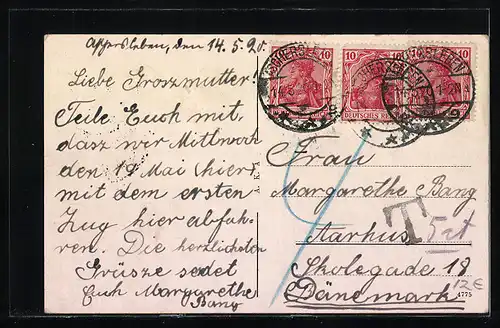 Aschersleben, den 14. 5. 20.
Liebe Groszmutter!
Teile Euch mit,
dasz wir Mittwoch
den 19 Mai (hier)
mit dem ersten
Zug hier abfah-
ren. Die herzlichsten
Grüsze sedet
Euch Margarethe
Bang
10
10
10
DEUTSCHES REICH
Frau
Margarethe Bang
Aarhus
Skolegade 18
Dänemark
T
12€
4775